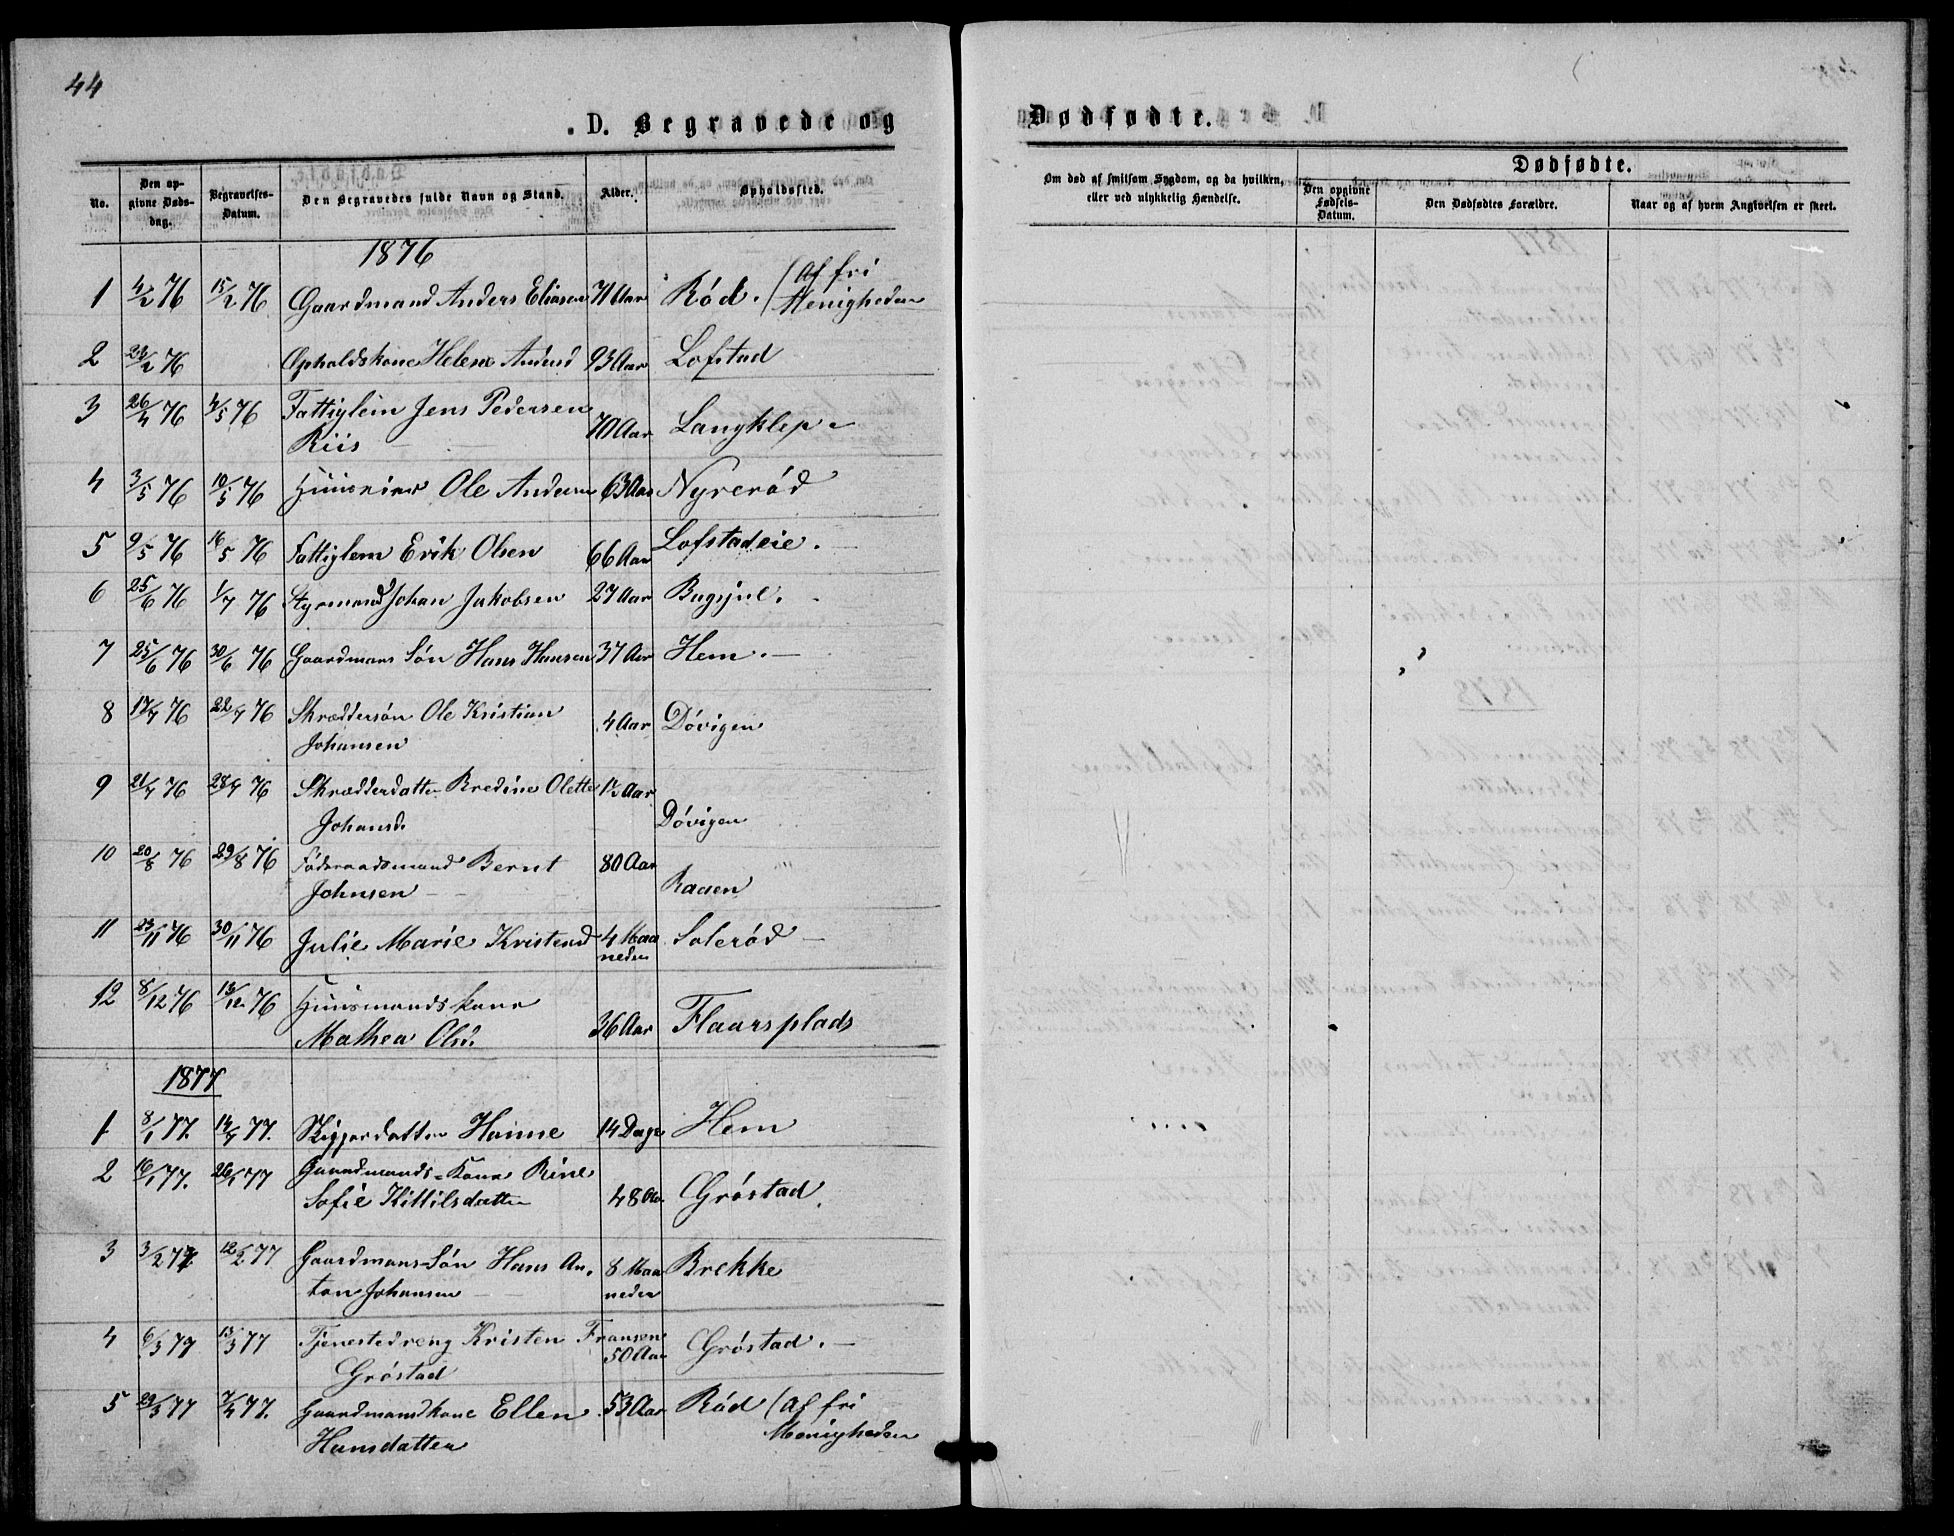 44
D. Begravede og
Dødfødte.
No.
Den op-
givne Døds-
dag.
Begravelses-
Datum.
Den Begravedes fulde Navn og Stand.
Alder.
Opholdssted.
Om død af smitsom Sygdom, og da hvilken,
eller ved ulykkelig Hændelse.
Dødfødte.
Den opgivne
Fødsels-
Datum.
Den Dødfødtes Forældre.
Naar og af hvem Angivelsen er skeet.
1876
1 4/2 76 15/2 76 Gaardmand Anders Eliasen 71 Aar Röd. (Af fri
Menigheden
2 23/2 76 Opholdskone Helene Andersd 93 Aar Lofstad
3 26/4 76 4/5 76 Fattiglem Jens Pedersen
Riis 70 Aar Langklep
4 3/5 76 10/5 76 Ole Andersen 63 Aar Nyreröd
5 9/5 76 16/5 76 Fattiglem Erik Olsen 66 Aar Lofstadeie.
6 25/6 76 1/7 76 Styrmand Johan Jakobsen 27 Aar
7 25/6 76 30/6 76 Gaardmans Sön Hans Hansen 37 Aar Hem.
8 17/7 76 22/7 76 Skræddersön Ole Kristian
Johansen 4 Aar Dövigen
9 21/7 76 28/7 76 Skrædderdatter Bredine Olette 1½ Aar
Johansd. Dövigen
10 20/8 76 29/8 76 Föderaadsmand Bernt 80 Aar
Johnsen Raaen
11 23/11 76 30/11 76 Julie Marie Kristensd 4 Maa
neder Soleröd
12 8/12 76 13/12 76 Huusmandskone
Mathea Olsd. 36 Aar Flaarsplads
1877
1 8/1 77. 14/1 77. Skipperdatter Hanne 14 Dage Hem
2 16/1 77. 26/1 77 Gaardmands-Kone Rine
Sofie Kittilsdatter 48 Aar Gröstad.
3 3/2 77. 12/2 77 Gaardmans-Sön Hans An-
ton Johansen 8 Maa
neder Brekke
4 6/3 77 13/3 77 Tjenestedreng Kristen Fransen
Gröstad 50 Aar Gröstad.
5 29/3 77 7/4 77. Gaardmandkone Ellen
Hansdatter 53 Aar Röd (Af fri
Menigheden